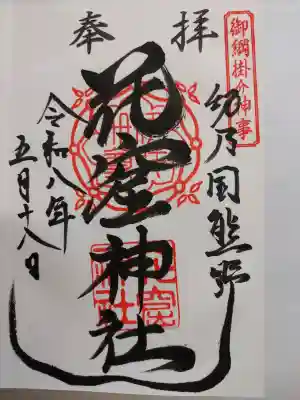 奉拝
御綱掛け神事
紀乃国熊野
花窟神社
令和八年
五月十八日
花窟神社